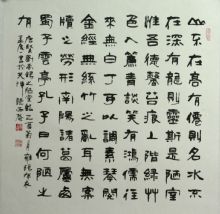 山不在高有仙則名水不
在深有龍則靈斯是陋室
惟吾德馨苔痕上階綠草
色入簾青談笑有鴻儒往
來無白丁可以調素琴閱
金經無絲竹之亂耳無案
牘之勞形南陽諸葛廬西
蜀子雲亭孔子曰何陋之
有